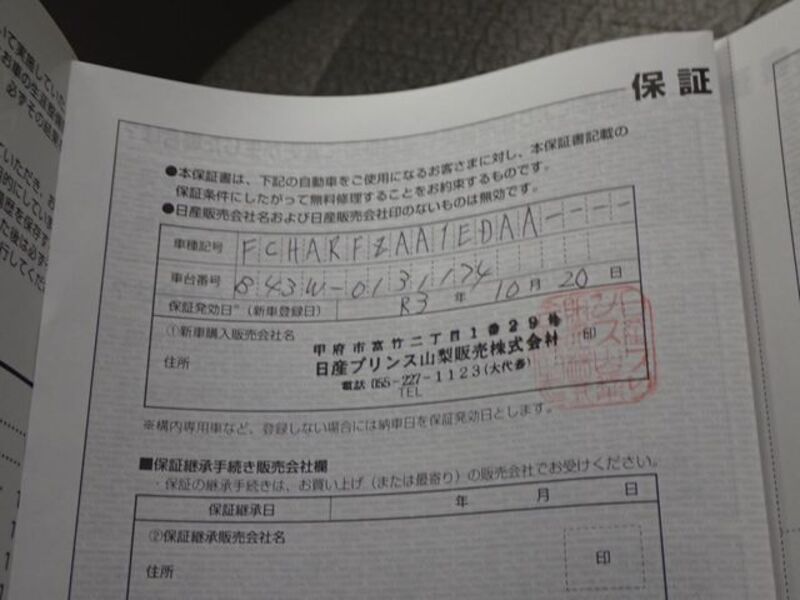 保証
●本保証書は、下記の自動車をご使用になるお客さまに対し、本保証書記載の
保証条件にしたがって無料修理することをお約束するものです。
●日産販売会社名および日産販売会社印のないものは無効です。
車種記号 FCHARFZAA1EDAA----
車台番号 B43W-0131174
保証発効日*(新車登録日) R3 年 10 月 20 日
①新車購入販売会社名
甲府市富竹二丁目1番29号
印
住所
日産プリンス山梨販売株式会社
電話 055-227-1123(大代表)
TEL
※構内専用車など、登録しない場合には納車日を保証発効日とします。
■保証継承手続き販売会社欄
・保証の継承手続きは、お買い上げ(または最寄り)の販売会社でお受けください。
保証継承日 年 月 日
②保証継承販売会社名
印
住所